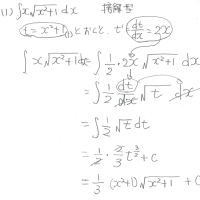 (1) ∫x√x²+1 dx
t = x²+1 とおくと、t' = dt/dx = 2x
∫x√x²+1 dx = ∫1/2・2x√x²+1 dx
= ∫1/2 dt/dx √t dx
= ∫1/2 √t dt
= 1/2・2/3 t^3/2 + C
= 1/3 (x²+1)√x²+1 + C